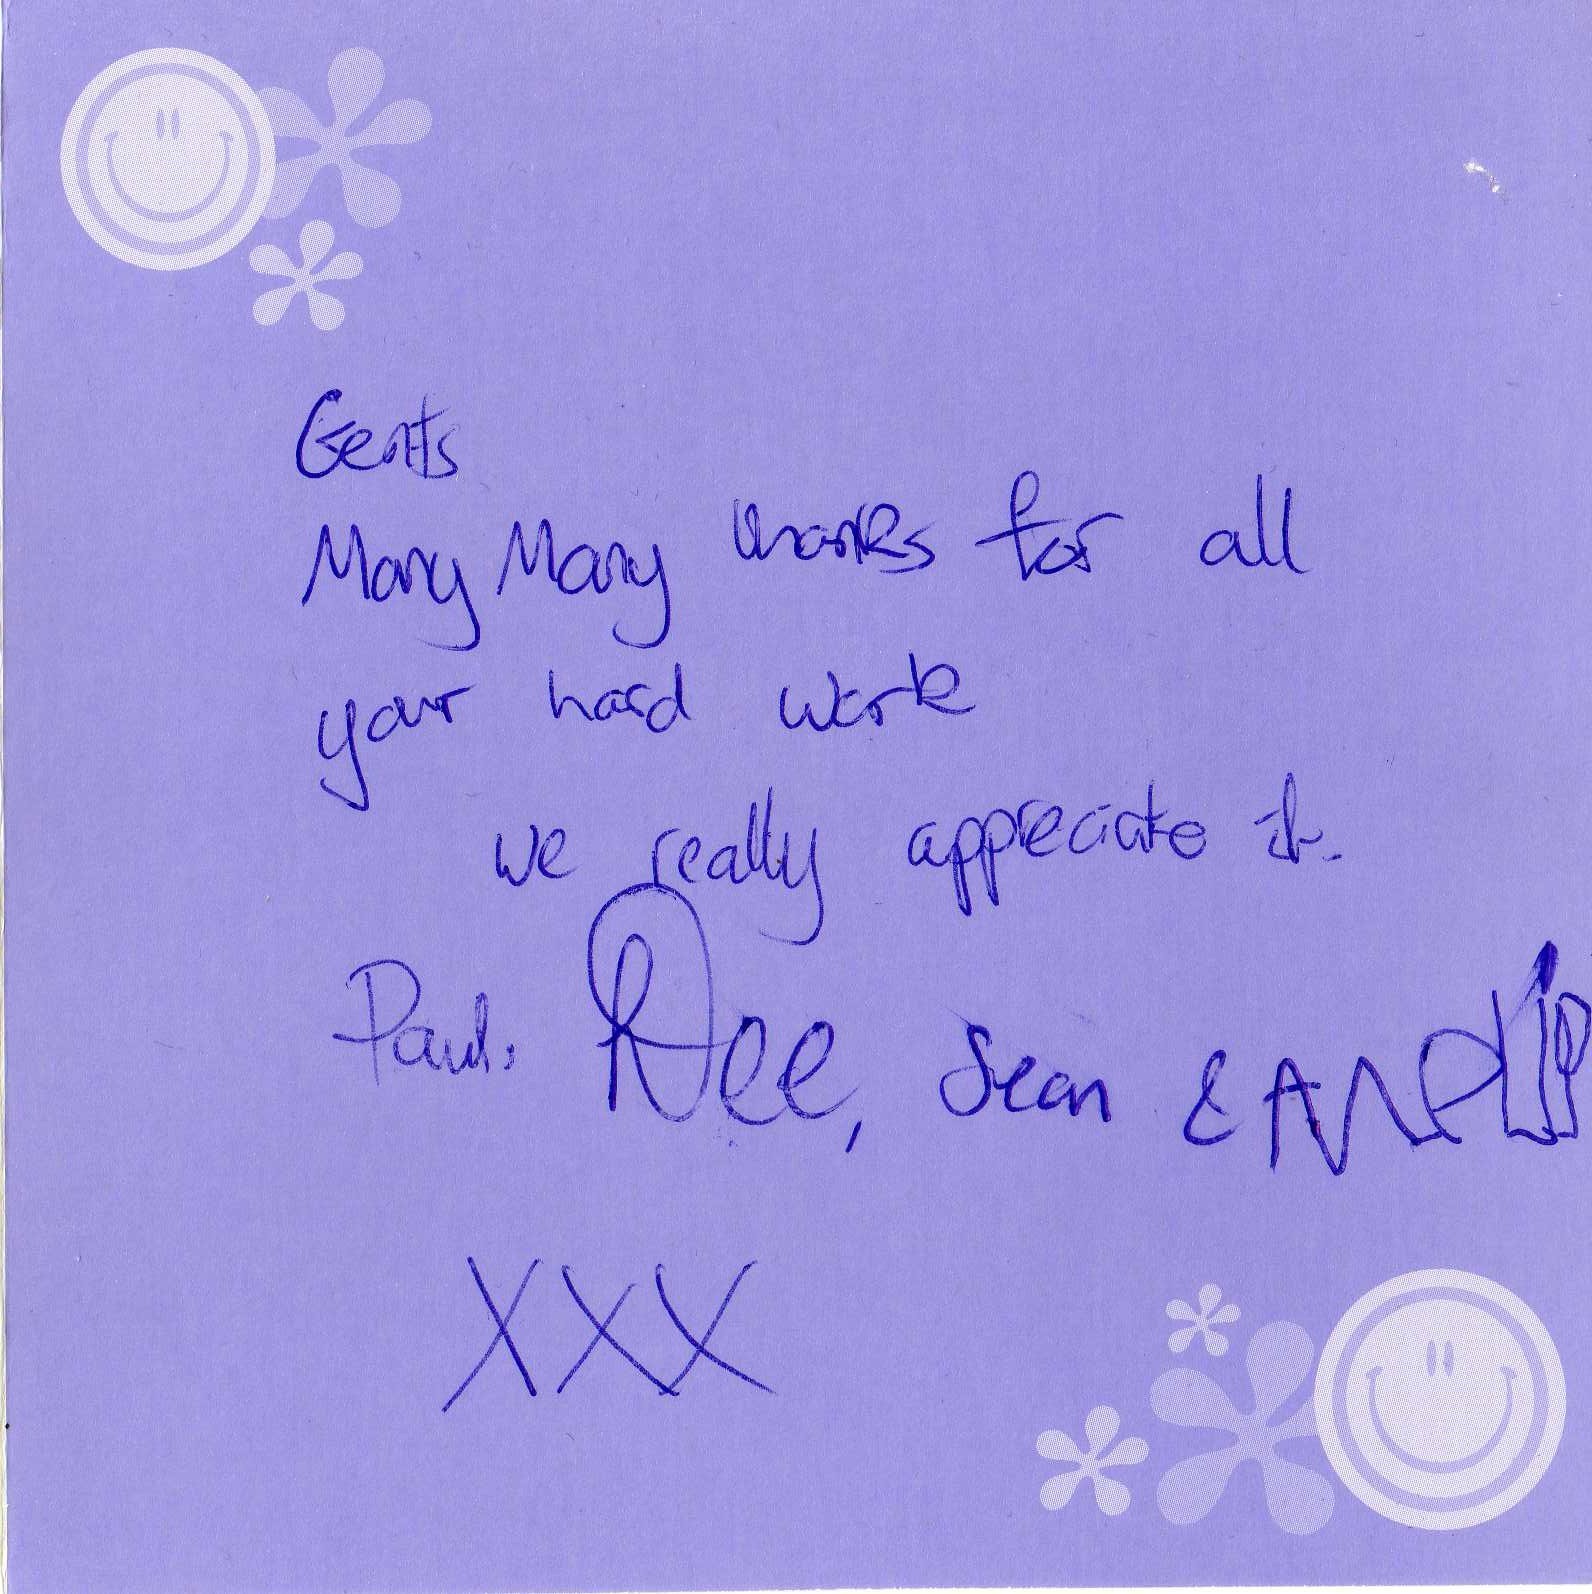 Gents
Many Many thanks for all
your hard work
we really appreciate it.
Paul. Dee, Sean &
XXX